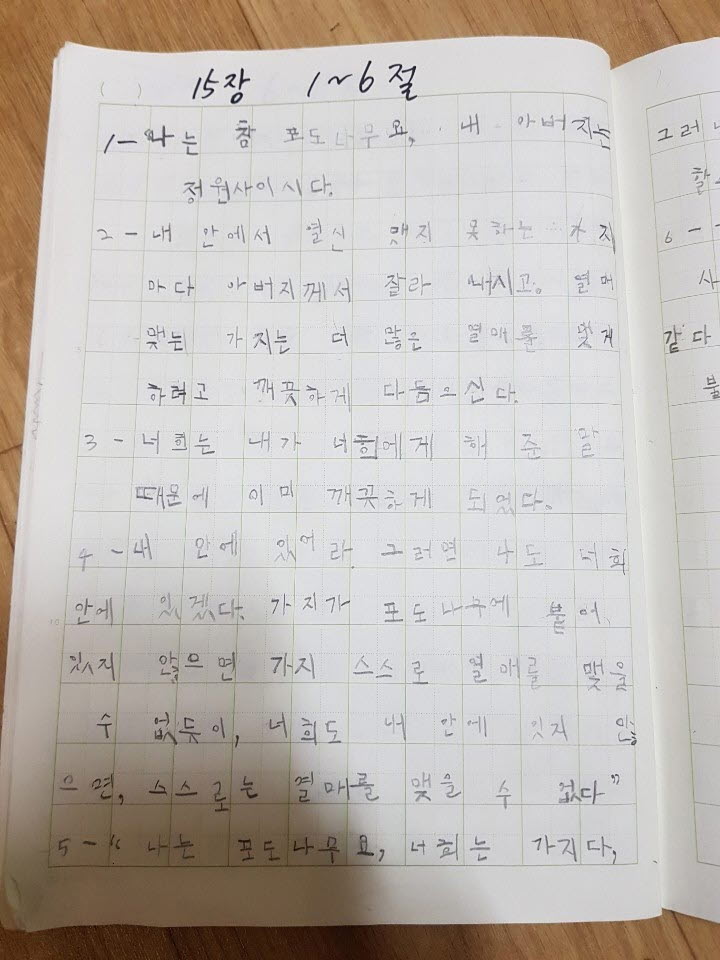 15장 1~6절
1-"나는 참 포도나무요, 내 아버지는
정원사이시다.
2-내 안에서 열신 맺지 못하는 가지
마다 아버지께서 잘라 내시고. 열매
맺는 가지는 더 많은 열매를 맺게
하려고 깨끗하게 다듬으신다.
3-너희는 내가 너희에게 해 준 말
때문에 이미 깨끗하게 되었다.
4-내 안에 있어라. 그러면 나도 너희
안에 있겠다. 가지가 포도나무에 붙어
있지 않으면 가지 스스로 열매를 맺을
수 없듯이, 너희도 내 안에 있지 않
으면, 스스로는 결매를 맺을 수 없다"
5-"나는 포도나무요, 너희는 가지다,
그러
할
6-
사
같다
불